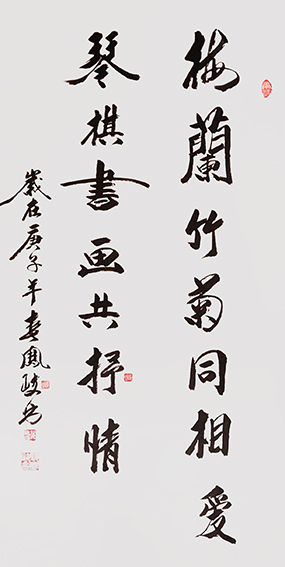 梅蘭竹菊同相愛
琴棋書画共抒情
歲在庚子年春鳳政书